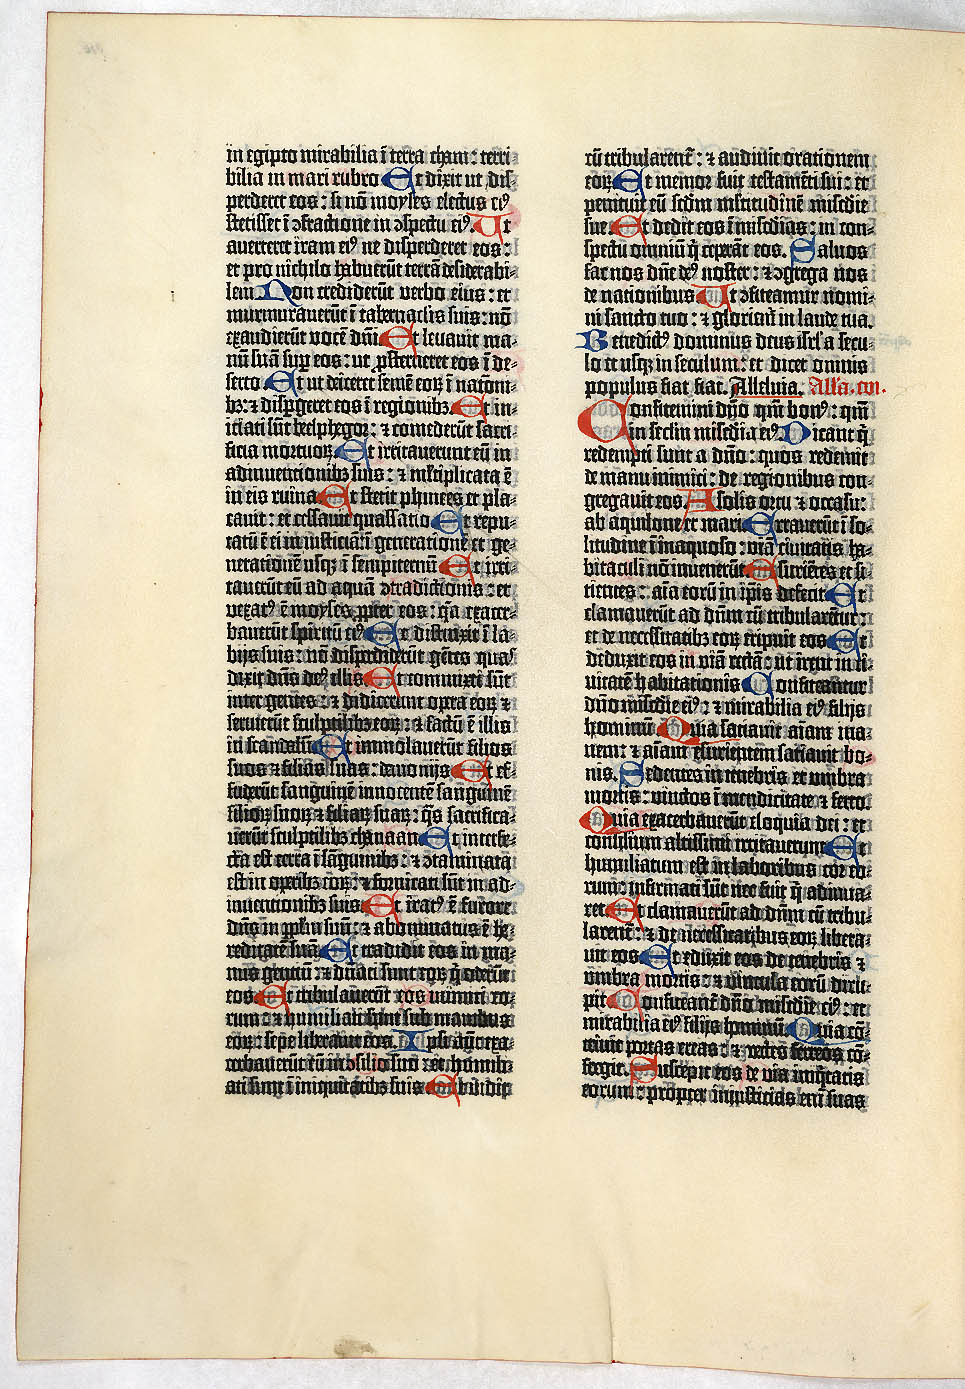 in egipto mirabilia ī terra cham : terri-
bilia in mari rubro Et dixit ut dis-
perderet eos : si nō moyses electus ei⁹
stetisset ī ↄfractione in ↄspectu ei⁹. Ut
auerteret iram ei⁹ ne disperderet eos :
et pro nichilo habuerūt terrā desiderabi-
lem Non crediderūt verbo eius : et
murmurauerūt ī tabernaclis suis : nō
exaudierūt vocē dn̄i. Et leuauit ma-
nū suā sup eos : ut ꝓsterneret eos ī de-
serto Et ut deiceret semē eoꝝ ī natōni-
bꝫ : ⁊ dispergeret eos ī regionibꝫ. Et in-
iciati sūt beelphegor : ⁊ comederūt sacri-
ficia mortuoꝝ Et irritauerunt eū in
adinuentionibꝫ suis : ⁊ mltiplicata ē
in eis ruina Et stetit phinees et pla-
cauit : et cessauit quassatio Et repu-
tatū ē ei in iusticiā : ī generationē et ge-
nerationē usqꝫ ī sempiternū Et irri-
tauerūt eū ad aquā ↄtradictionis : et
vexat⁹ ē moyses ꝓpter eos : q̄a exacer-
bauerūt spiritū ei⁹ Et distinxit ī la-
bijs suis : nō disperdiderūt gētes quas
dixit dn̄s de⁹ illis Et commixti sūt
inter gentes : ⁊ didicerunt opera eoꝝ ⁊
seruierūt sculptilibꝫ eoꝝ : ⁊ factū ē illis
in scandalū Et immolauerūt filios
suos ⁊ filias suas : demonijs Et ef-
fuderūt sanguinē innocentē : sanguinē
filioꝝ suoꝝ ⁊ filiaꝝ suaꝝ : q̄s sacrifica-
uerūt sculptilibꝫ chanaan Et interfe-
cta est terra ī sāguinibꝫ : ⁊ ↄtaminata
est in operibꝫ eoꝝ : ⁊ fornicati sūt in ad-
inuentionibꝫ suis Et irat⁹ ē furore
dn̄s in pplm suū : ⁊ abominatus ē he-
reditatē suā Et tradidit eos in ma-
nus gentiū : ⁊ dn̄ati sunt eoꝝ q̄ oderūt
eos Et tribulauerūt eos inimici eo-
rum : ⁊ humiliati sunt sub manibus
eoꝝ : sepe liberauit eos. Ipsi aūt exa-
cerbauerūt eū in ↄsilio suo : et humili-
ati sunt ī iniquitatibꝫ suis Et vidit
cū tribularent̄ : ⁊ audiuit orationem
eoꝝ Et memor fuit testamēti sui : et
penituit eū scdm mltitudinē miscdie
sue. Et dedit eos ī miscdias : in con-
spectu omniū q̄ ceperāt eos. Saluos
fac nos dn̄e de⁹ noster : ⁊ ↄgrega nos
de nationibus Ut ↄfiteamur nomi-
ni sancto tuo : ⁊ gloriem̄ in laude tua.
Benedict⁹ dominus deus isrl a secu-
lo et usqꝫ in seculum : et dicet omnis
populus fiat fiat. Alleluia. Alla. cvi.
Confitemini dn̄o qm̄ bon⁹ : qm̄
in seclm miscdia ei⁹ Dicant q̄
redempti sunt a dn̄o : quos redemit
de manu inimici : de regionibus con-
gregauit eos. A solis ortu ⁊ occasu :
ab aquilone et mari Errauerūt ī so-
litudine ī inaquoso : viā ciuitatis ha-
bitaculi nō inuenerūt Esurientes et si-
tientes : aīa eorū in ipīs defecit Et
clamauerūt ad dn̄m cū tribularētur :
et de necessitatibꝫ eoꝝ eripuit eos Et
deduxit eos in viā rectā : ut irent in ci-
uitatē habitationis Confiteantur
dn̄o miscdie ei⁹ : ⁊ mirabilia ei⁹ filijs
hominū Quia satiauit aīam ina-
nem : ⁊ aīam esurientem satiauit bo-
nis. Sedentes in tenebris et umbra
mortis : vinctos ī mendicitate ⁊ ferro.
Quia exacerbauerūt eloquia dei : et
consilium altissimi irritauerunt Et
humiliatum est in laboribus cor eo-
rum : infirmati sūt nec fuit q̄ adiuua-
ret Et clamauerūt ad dn̄m cū tribu-
larent̄ : ⁊ de necessitatibus eoꝝ libera-
uit eos Et eduxit eos de tenebris ⁊
umbra mortis : ⁊ vincula eorū diru-
pit Confiteant̄ dn̄o miscdie ei⁹ : et
mirabilia ei⁹ filijs hominū Quia cō-
triuit portas ereas : ⁊ vectes ferreos cō-
fregit. Suscepit eos de via iniqtatis
eorum : propter iniusticias em̄ suas